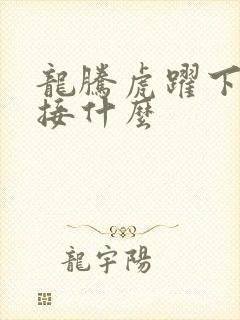 龍騰虎躍下
接什麼
龍宇陽